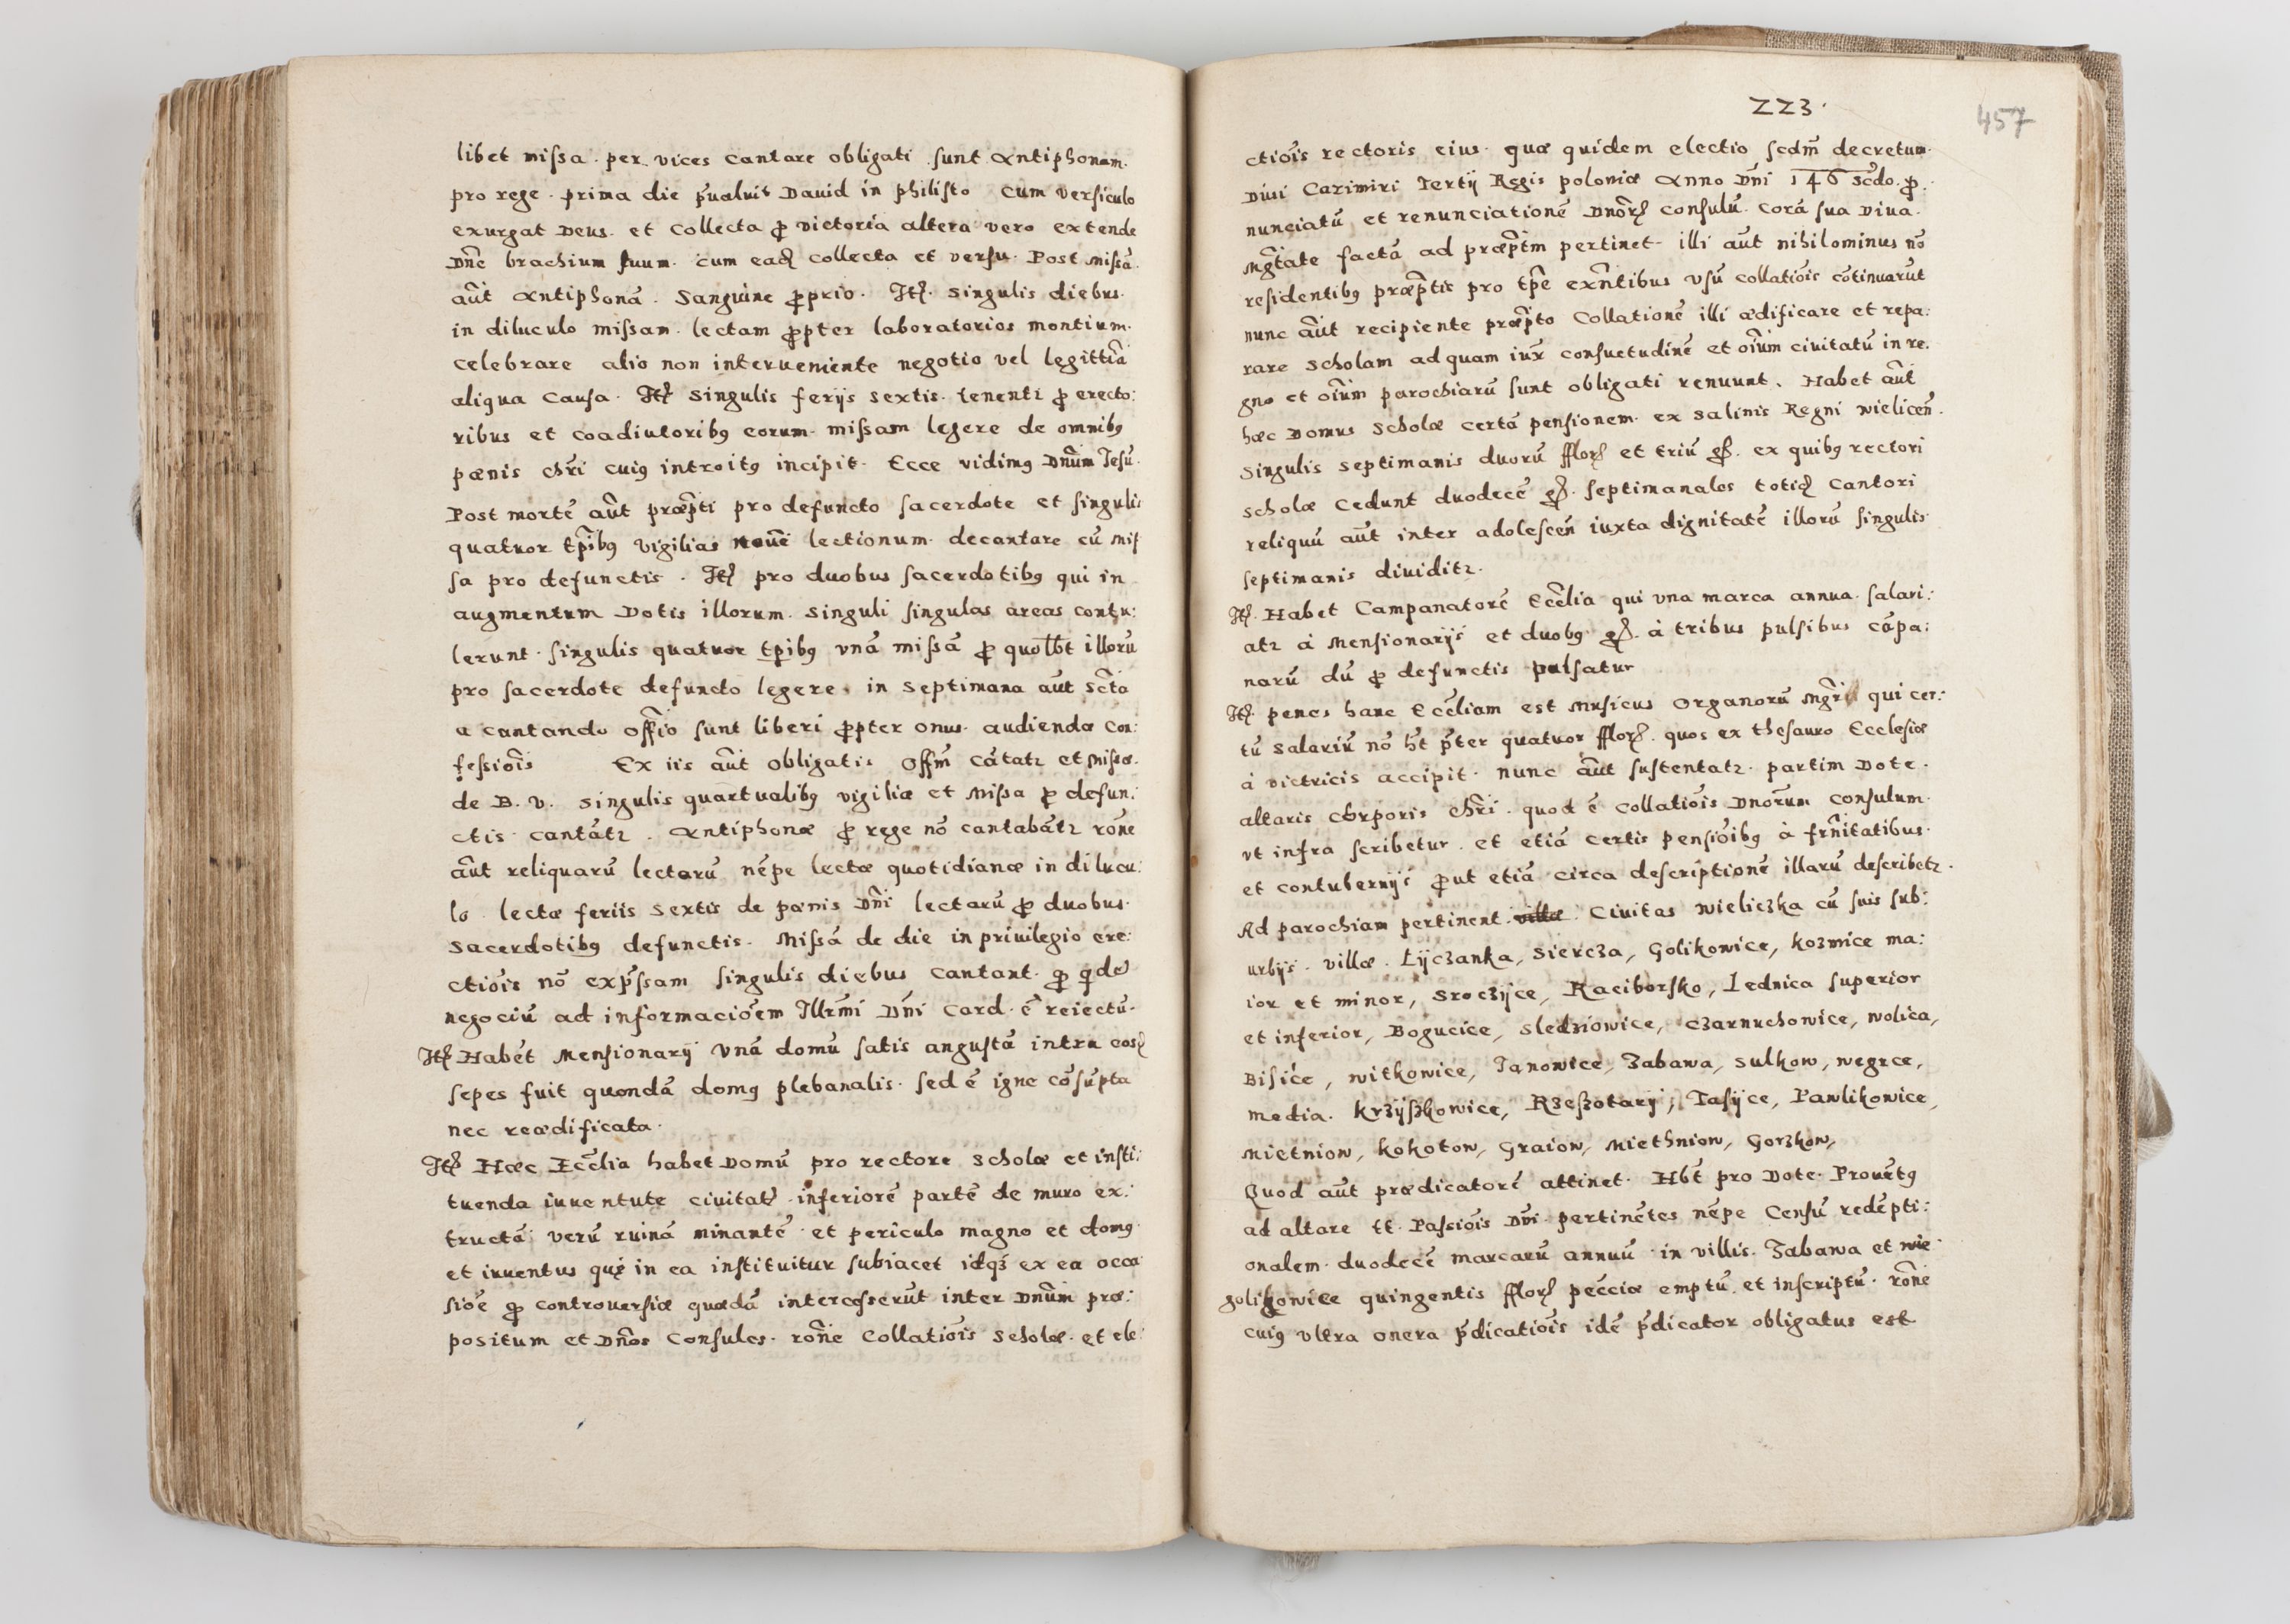 libet missa per vices cantare obligati sunt Antiphonam.
pro rege. prima die p̃ualuit Dauid in philisto cum versiculo
exurgat Deus. et collecta ꝓ victoria altera vero extende
Dñe brachium suum. cum eadẽ collecta et versu. Post missã.
aũt Antiphonã. Sanguine ꝓprio. Itẽ. singulis diebus.
in diluculo missam. lectam ꝓpter laboratorios montium.
celebrare alio non interueniente negotio vel legittĩa
aliqua causa. Itẽ singulis ferijs sextis. tenentꝛ ꝓ erecto:
ribus et coadiutoribꝰ eorum missam legere de omnibꝰ
pænis chr̃i cuiꝰ introitꝰ incipit. Ecce vidimꝰ Dnũm Jesũ.
Post mortẽ aũt præp̃ti pro defuncto sacerdote et singulis
quatuor tp̃ibꝰ vigilias nouẽ lectionum decantare cũ mis
sa pro defunctis. Itẽ pro duobus sacerdotibꝰ qui in
augmentum Dotis illorum. singuli singulas areas contu:
lerunt. singulis quatuor tp̱ibꝰ vnã missã ꝓ quol̃t illorũ
pro sacerdote defuncto legere. in septimana aũt sct̃a
a cantando offi̇̃o sunt liberi ꝓpter onus audiendæ con:
fessiõis Ex iis aũt obligatis offm̃ cãtatꝛ et missæ.
de B. V. singulis quartualibꝰ vigiliæ et missa ꝓ defun:
ctis cantãtꝛ. Antiphonæ ꝓ rege nõ cantabãtꝛ rõne
aũt reliquarũ lectarũ nẽpe lectæ quotidianæ in dilucu:
lo lectæ feriis sextis de pænis Dñi lectarũ ꝓ duobus.
sacerdotibꝰ defunctis. Missã de die in priuilegio ere:
ctiõis nõ exp̃ssam singulis diebus cantant. ꝓ qde͂
negociũ ad informaciõem Illr̃mi Dñi Card. ẽ reiectũ.
Itẽ Habẽt Mensionarij vnã domũ satis angustã intra eosd̃
sepes fuit quondã domꝰ plebanalis. sed ẽ igne cõsũpta
nec reædificata.
Itẽ Hæc Ecc̃lia habet Domũ pro rectore scholæ et insti:
tuenda iuuentute ciuitatꝭ inferiorẽ partẽ de muro ex:
tructã verũ ruinã minantẽ et periculo magno et domꝰ
et iuuentus quæ in ea instituitur subiacet idqꝫ ex ea occa
siõe ꝓ controuersiæ quædã intercesserũt inter Dnũm præ:
positum et Dños Consules. rõne Collatiõis scholæ. et ele:
223.
457
ctiõis rectoris eius. quæ quidem electio scdm̃ decretum.
Diui Cazimiri Tertij Regis poloniæ Anno Dñi 146 scd̃o. ꝓ.
nunciatũ et renunciationẽ Dnõrꝝ consulũ. corã sua Diua.
Mgt̃ate factã ad præp̃tm pertinet. illi aũt nihilominus nõ
residentibꝰ præp̃tis pro tp̃e exñtibus vsũ collatiõis cõtinuarũt
nunc aũt recipiente præp̃to Collationẽ illi ædificare et repa:
rare scholam ad quam iux̃ consuetudinẽ et oĩum ciuitatũ in re:
gno et oĩum parochiarũ sunt obligati renuunt. Habet aũt
hæc Domus scholæ certã pensionem ex salinis Regni wielicen̄.
singulis septimanis duorũ fflorꝝ et triũ gꝝ. ex quibꝰ rectori
scholæ cedunt duodecẽ gꝝ. septimanales totidẽ cantori
reliquũ aũt inter adolescen̄ iuxta dignitatẽ illorũ singulis
septimanis diuiditꝛ.
Itẽ. Habet Campanatorẽ Ecc̃lia qui vna marca annua. salari:
atꝛ à Mensionarijs et duobꝰ gꝝ. à tribus pulsibus cãpa:
narũ dũ ꝓ defunctis pulsatur
Itẽ. penes hanc Ecc̃liam est Musicus organorũ Mgr̃i qui cer:
tũ salariũ nõ h̃t p̃ter quatuor fflorꝝ. quos ex thesauro Ecclesiæ
à victricis accipit. nunc aũt sustentatꝛ. partim Dote.
altaris corporis chr̃i. quod ẽ collatiõis Dnõrum consulum.
vt infra scribetur. et etiã certis pensiõibꝰ à frñitatibus.
et contubernijs ꝓut etiã circa descriptionẽ illarũ describetꝛ.
Ad parochiam pertinent. Ciuitas wieliczka cũ suis sub:
urbijs. villæ. Lijczanka, siercza, Golikowice, kozmice ma:
ior et minor, sroczijce, Raciborsko, Lednica superior
et inferior, Bogucice, sledziowice, czarnuchowice, wolica,
Bisice, witkowice, Janowice, Zabawa, sulkow, wegrce,
media. krzijszkowice, Rzeszotarij, Tasijce, Pawlikowice,
Mietniow, kokotow, Graiow, Miethniow, Gorzkow,
Quod aũt prædicatorẽ attinet. Hb̃t pro Dote. Prouẽtꝰ
ad altare tt. Passiõis Dñi pertinẽtes nẽpe Censũ redẽpti:
onalem. duodecẽ marcarũ annuũ in villis. Zabawa et wie
golikowice quingentis fflorꝝ peccĩæ emptũ. et inscriptũ. rõne
cuiꝰ vltra onera p̃dicatiõis idẽ p̃dicator obligatus est